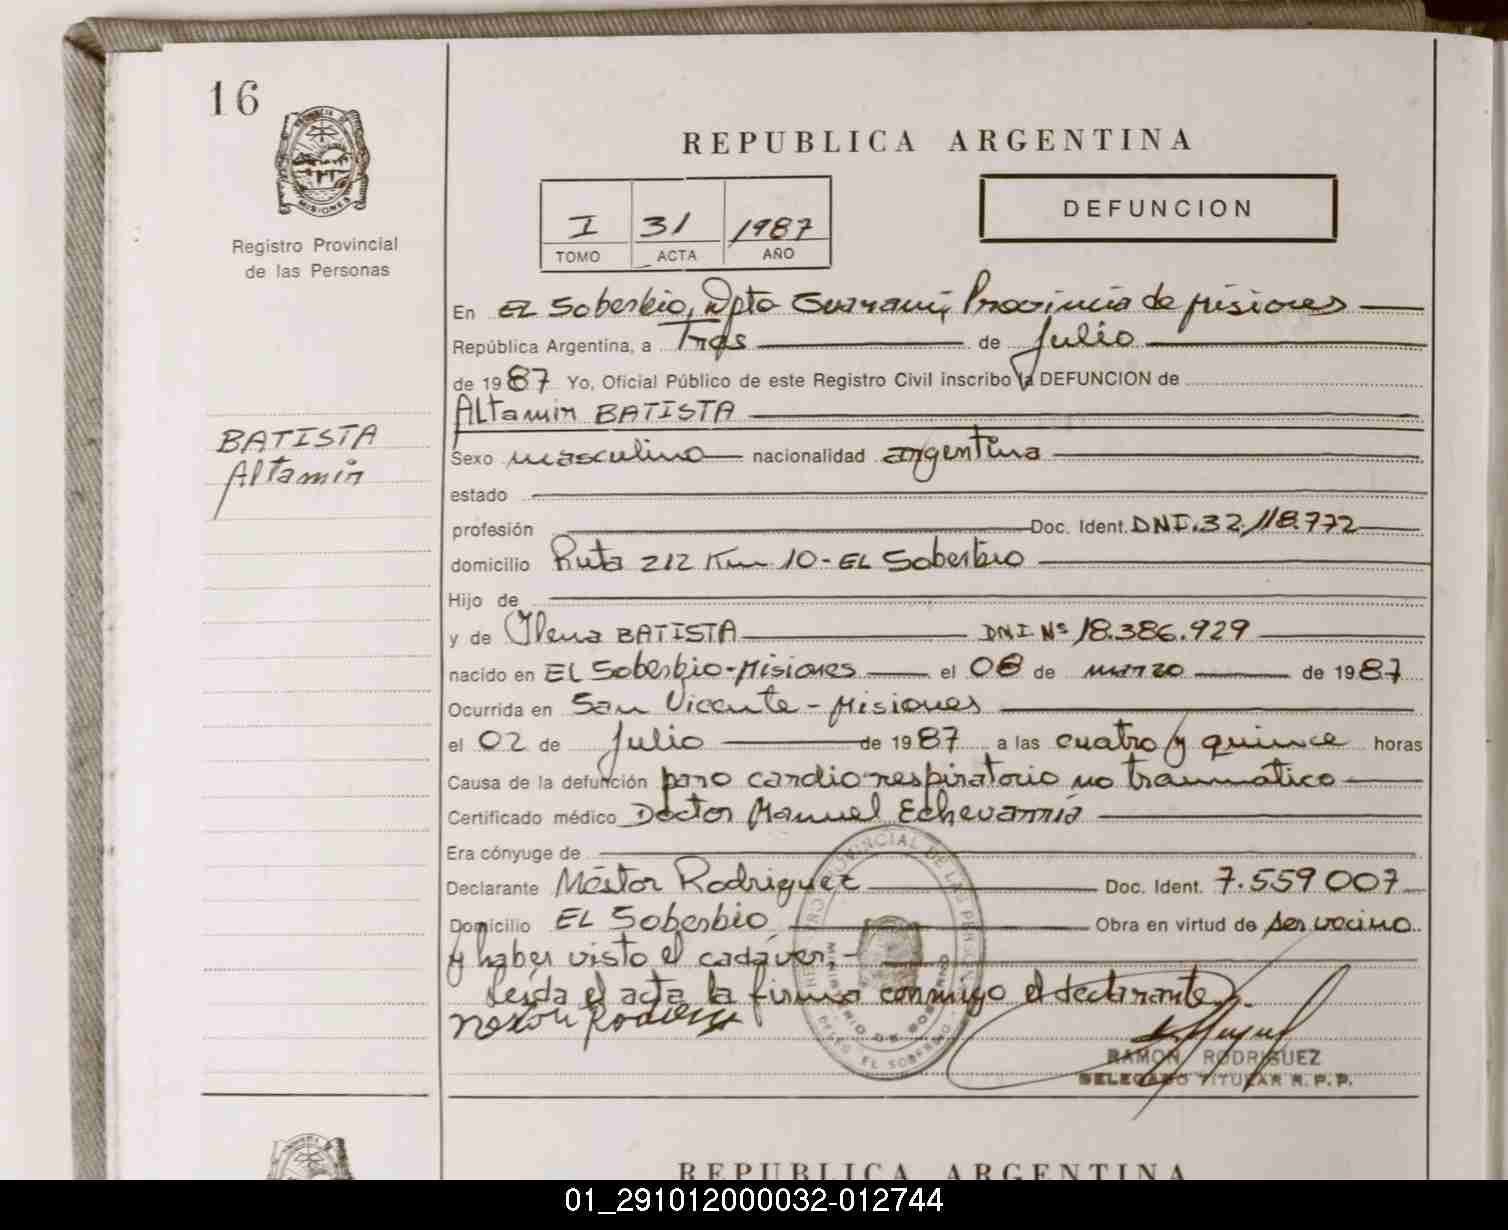 16
PROVINCIA DE
MISIONES
Registro Provincial
de las Personas
BATISTA
Altamir
REPUBLICA ARGENTINA
I 31 1987
TOMO ACTA AÑO
DEFUNCION
En EL Soberbio, Dpto Guarani, Provincia de Misiones
República Argentina, a Tres de Julio
de 1987 Yo, Oficial Público de este Registro Civil inscribo la DEFUNCION de
Altamir BATISTA
Sexo masculino nacionalidad argentina
estado
profesión Doc. Ident. DNI.32.118.772
domicilio Ruta 212 Km 10-EL Soberbio
Hijo de
y de Ilena BATISTA DNI Nº 18.386.929
nacido en EL Soberbio-Misiones el 08 de marzo de 1987
Ocurrida en San Vicente - Misiones
el 02 de Julio de 1987 a las cuatro y quince horas
Causa de la defunción paro cardio-respiratorio no traumatico
Certificado médico Doctor Manuel Echevarría
Era cónyuge de
Declarante Néstor Rodriguez Doc. Ident. 7.559 007
Domicilio EL Soberbio Obra en virtud de ser vecino
y haber visto el cadáver.-
Leída el acta la firma conmigo el declarante.-
RAMON RODRIGUEZ
DELEGADO TITULAR R.P.P.
REPUBLICA ARGENTINA
01_291012000032-012744